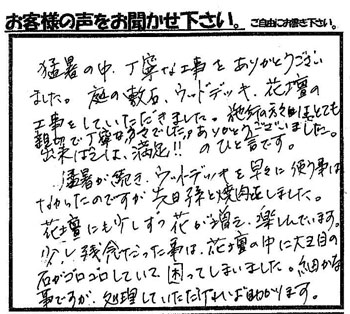 お客様の声をお聞かせ下さい。ご自由にお書き下さい。
猛暑の中、丁寧な工事をありがとうござい
ました。庭の敷石、ウッドデッキ、花壇の
工事をしていただきました。施行の方々はとても
親切で丁寧な方々でした。ありがとうございました。
出来ばえは、満足!!のひと言です。
猛暑が続き、ウッドデッキを早々に使う事は
なかったのですが先日孫と焼肉をしました。
花壇にも少しずつ花が増え、楽しんでいます。
少し残念だった事は、花壇の中に大き目の
石がゴロゴロしていて、困ってしまいました。細かな
事ですが、処理していただければ助かります。